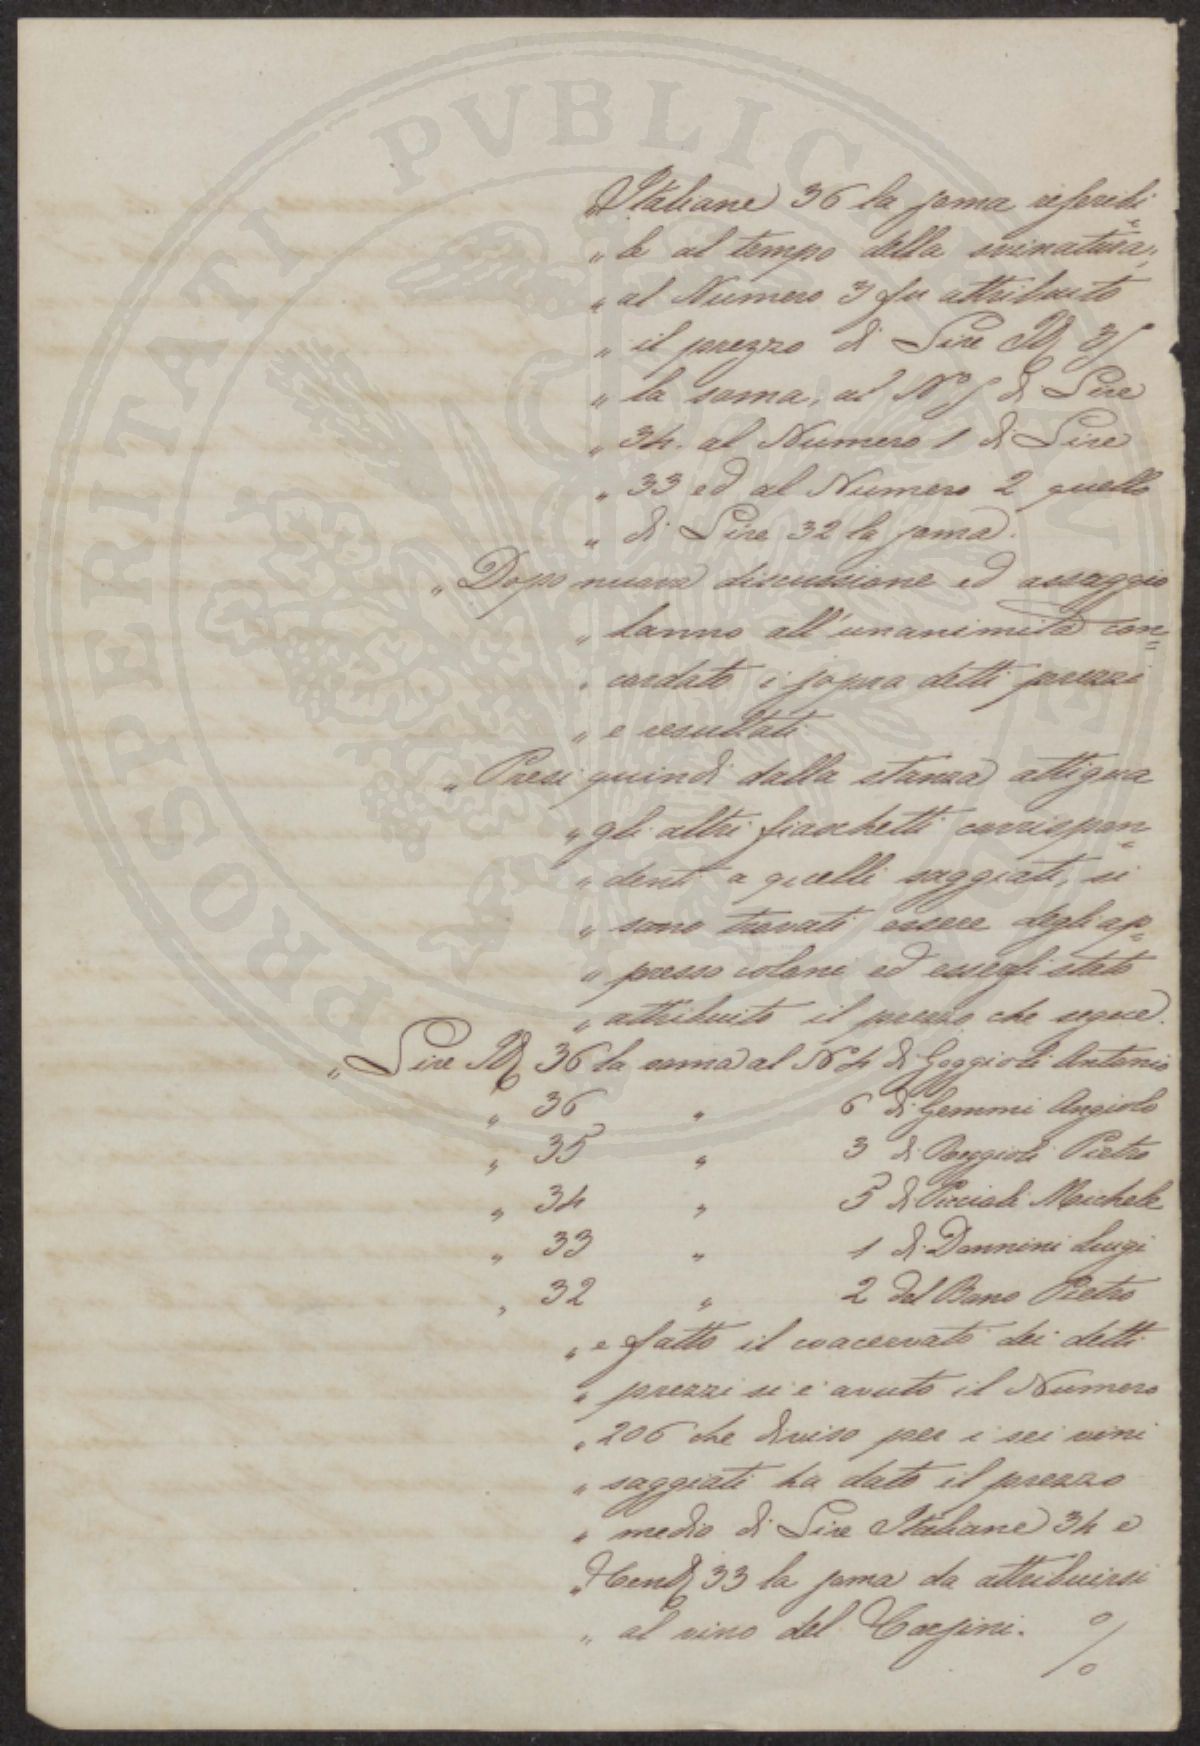 PROSPERITATI PVBLICAE AVGENDAE
„ Italiane 36 la soma referibi=
„ le al tempo della svinatura;
„ al Numero 3 fu attribuito
„ il prezzo di Lire It 35
„ la soma; al N° 5 di Lire
„ 34. al Numero 1 di Lire
„ 33 ed al Numero 2 quello
„ di Lire 32 la soma.
„ Dopo nuova discussione ed assaggio
„ hanno all'unanimità con=
„ cordato i sopra detti prezzi
„ e resultati
„ Presi quindi dalla stanza attigua
„ gli altri fiaschetti corrispon=
„ denti a quelli saggiati, si
„ sono trovati essere degli ap=
„ presso coloni ed essergli stato
„ attribuito il prezzo che segue.
„ Lire It 36 la soma al N° 4 di Goggioli Antonio
„ 36 „ 6 di Gemmi Angiolo
„ 35 „ 3 di Reggioli Pietro
„ 34 „ 5 di Piccioli Michele
„ 33 „ 1 di Dannini Luigi
„ 32 „ 2 del Bono Pietro
„ e fatto il coacervato dei detti
„ prezzi si è avuto il Numero
„ 206 che diviso per i sei vini
„ saggiati ha dato il prezzo
„ medio di Lire Italiane 34 e
„ Cent 33 la soma da attribuirsi
„ al vino del Carfini. %